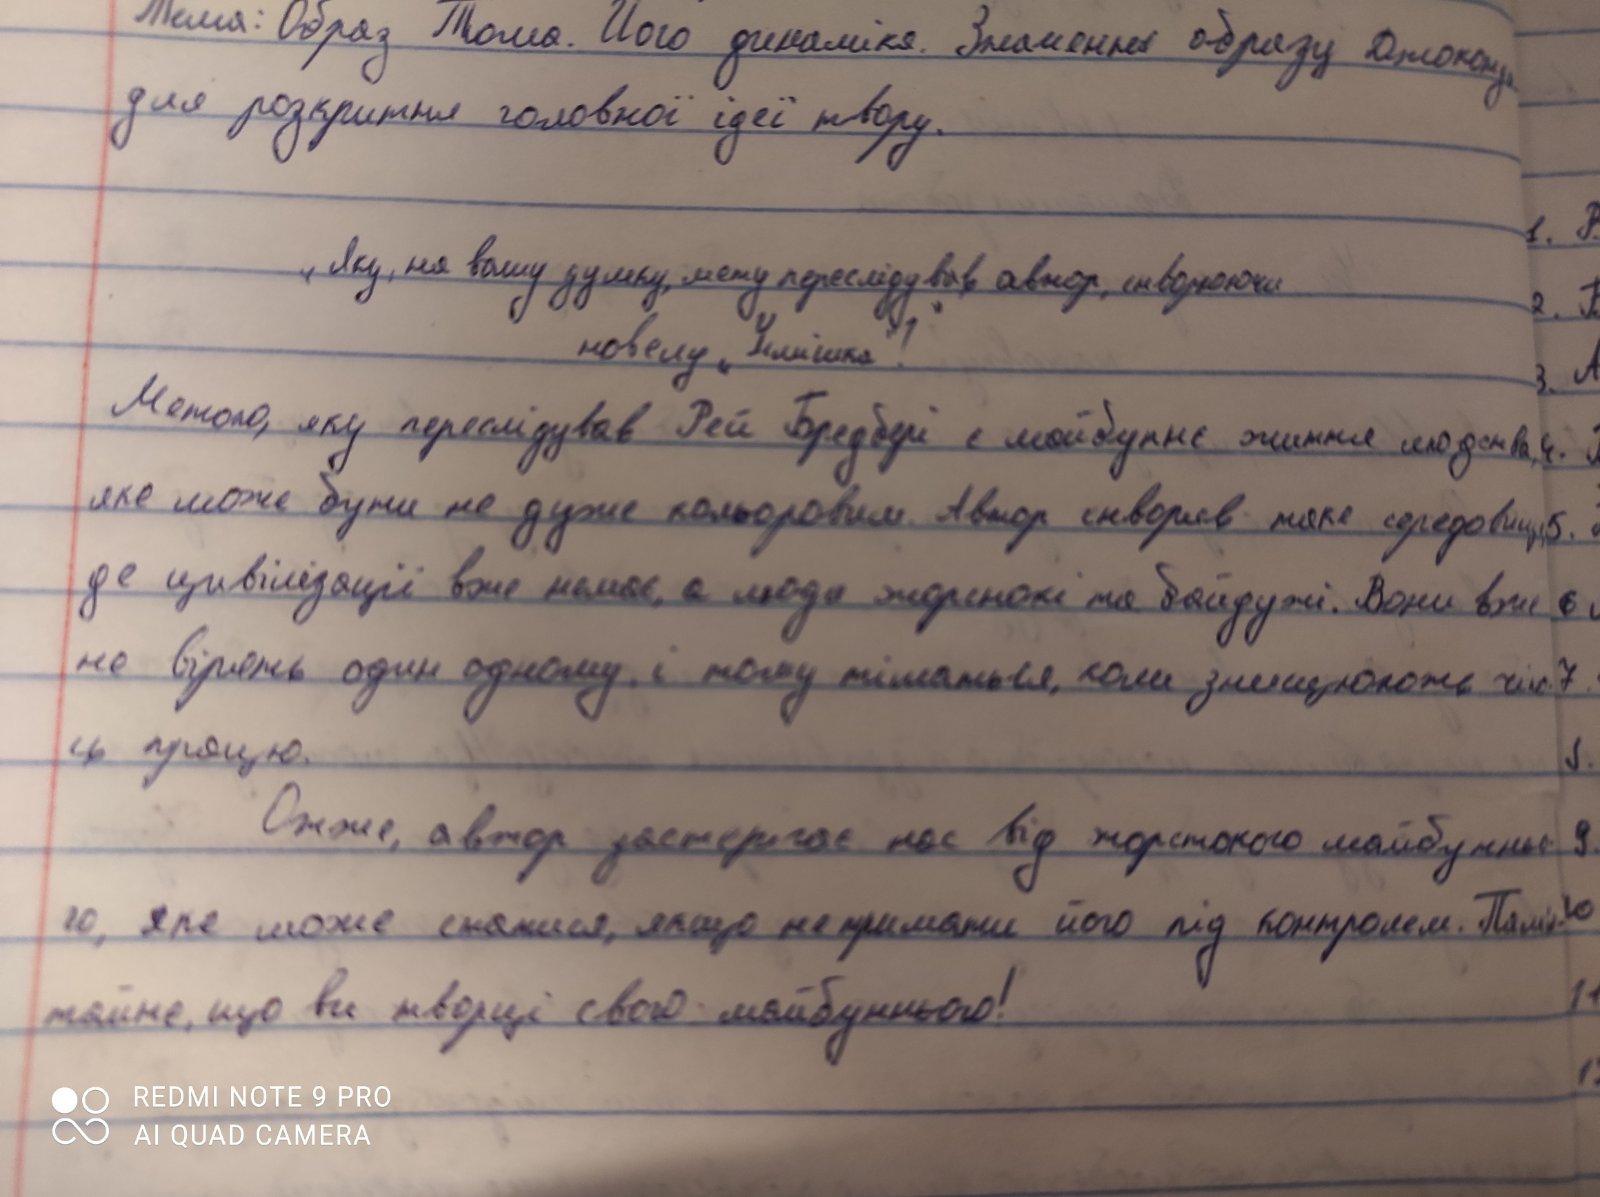 Тема: Образ Тома. Його динаміка. Значення образу Джоконди
для розкриття головної ідеї твору.
„Яку, на вашу думку, мету переслідував автор, створюючи
новелу „Усмішка"?"
Метою, яку переслідував Рей Бредбері є майбутнє життя людства,
яке може бути не дуже кольоровим. Автор створив таке середовище,
де цивілізації вже немає, а люди жорстокі та байдужі. Вони вже
не вірять один одному, і тому тішаться, коли знищюють чиюсь
сь працю.
Отже, автор застерігає нас від жорстокого майбутньо
го, яке може статися, якщо не тримати його під контролем. Пам'я
тайте, що ви творці свого майбутнього!
1. Р
2. Б
3. А
4.
5.
6
7
8.
9.
10
11
REDMI NOTE 9 PRO
AI QUAD CAMERA